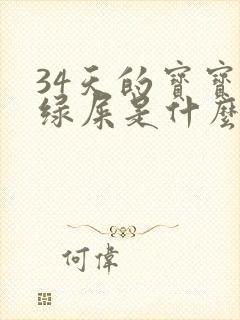 34天的寶寶
绿屎是什麼
何偉